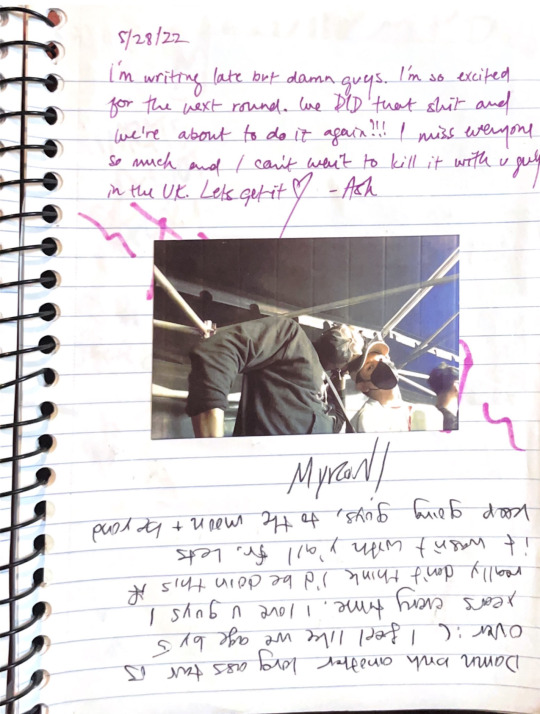 5/28/22
I'm writing late but damn guys. I'm so excited
for the next round. We DID that shit and
we're about to do it again!!! I miss everyone
so much and I can't wait to kill it with u guys
in the UK. Lets get it ♡ -Ash
Myron//
Damn bruh another long ass tour is
over :( I feel like we age by 5
years every time. I love u guys I
really don't think I'd be doin this if
it wasn't with y'all fr. Lets
keep going guys, to the moon + beyond